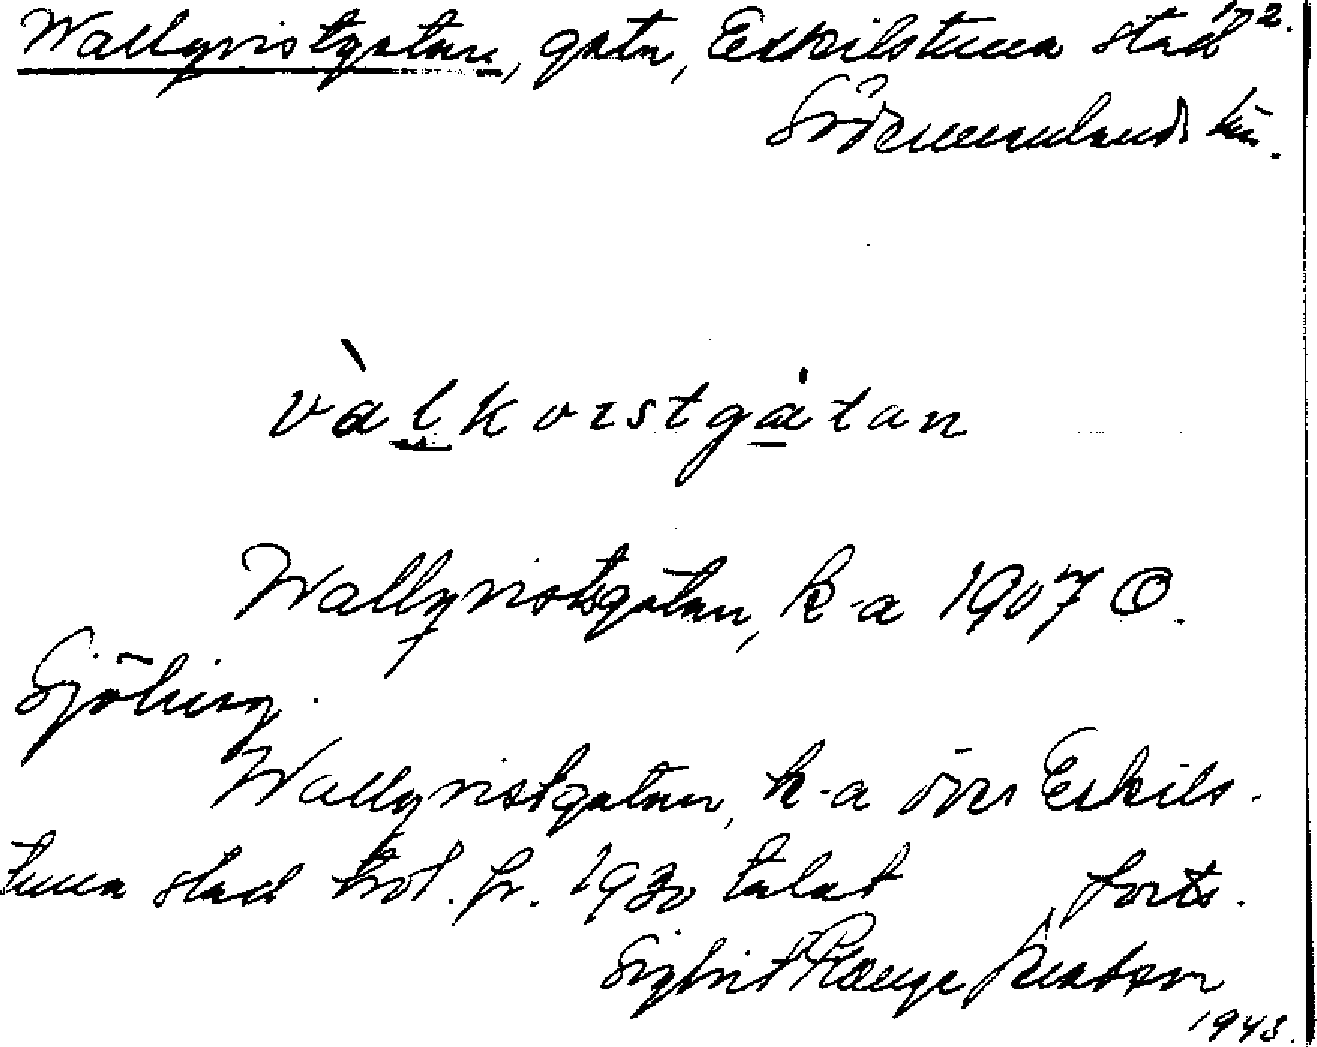 Wallqvistgatan, gata, Eskilstuna stad 172.
Södermanlands län.
vàlkvistgàtan
Wallqvistsgatan, k-a 1907 O.
Sjöberg.
Wallqvistgatan, k-a över Eskils-
tuna stad trol. fr. 1930 talet forts.
Sigbrit
1943.